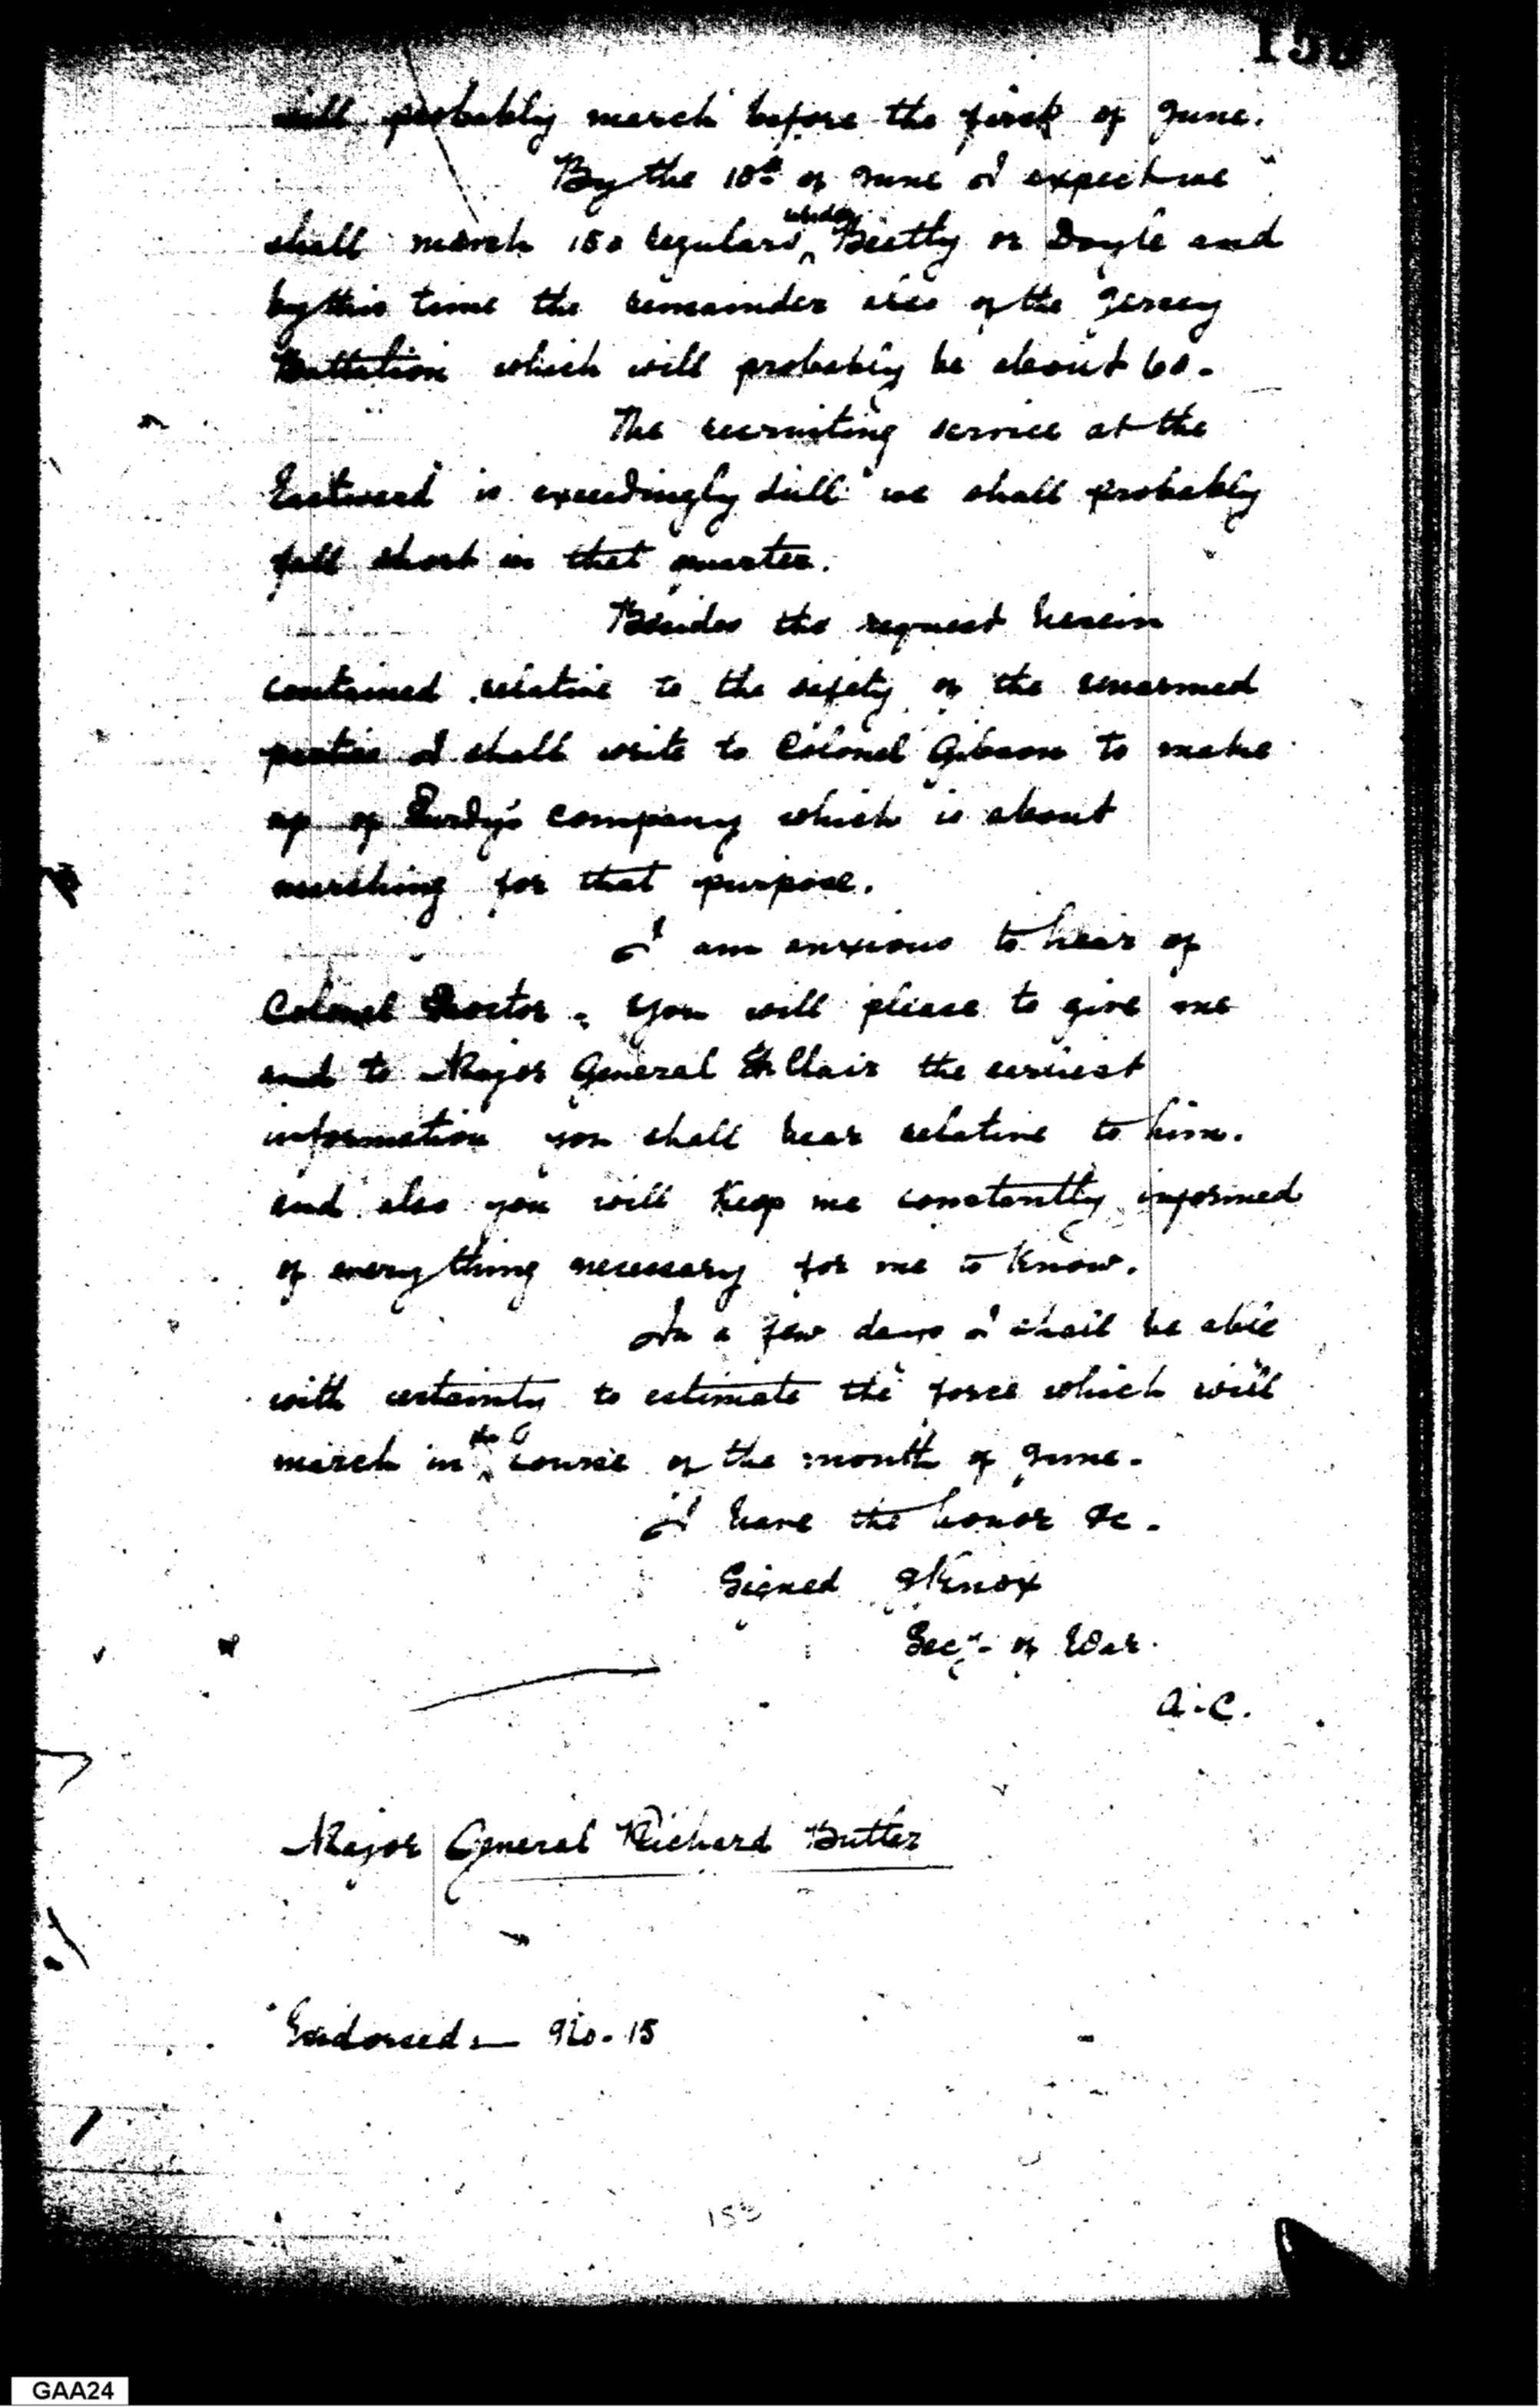 will probably march before the first of June.
By the 10th of June I expect we
shall march 150 regulars under Beatty or Doyle and
by this time the remainder also of the Jersey
Battalion which will probably be about 60.
The recruiting service at the
Eastward is exceedingly dull we shall probably
fall short in that quarter.
Besides the request herein
contained relative to the safety of the unarmed
parties I shall write to Colonel Gibson to make
up of Purdy's company which is about
marching for that purpose.
I am anxious to hear of
Colonel Proctor. You will please to give me
and to Major General St Clair the earliest
information you shall hear relative to him.
and also you will keep me constantly informed
of every thing necessary for me to know.
In a few days I shall be able
with certainty to estimate the force which will
march in the course of the month of June.
I have the honor &c.
Signed HKnox
Secy. of War.
A.C.
Major General Richard Butler
Endorsed - No. 15
153
GAA24